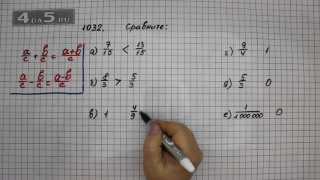 4DA5.RU
1032. Сравните:
a/c + b/c = a+b/c
a/c - b/c = a-b/c
а) 7/15 < 13/15
б) 8/3 > 5/3
в) 1 4/9
г) 9/4 1
д) 5/3 0
е) 1/1000000 0